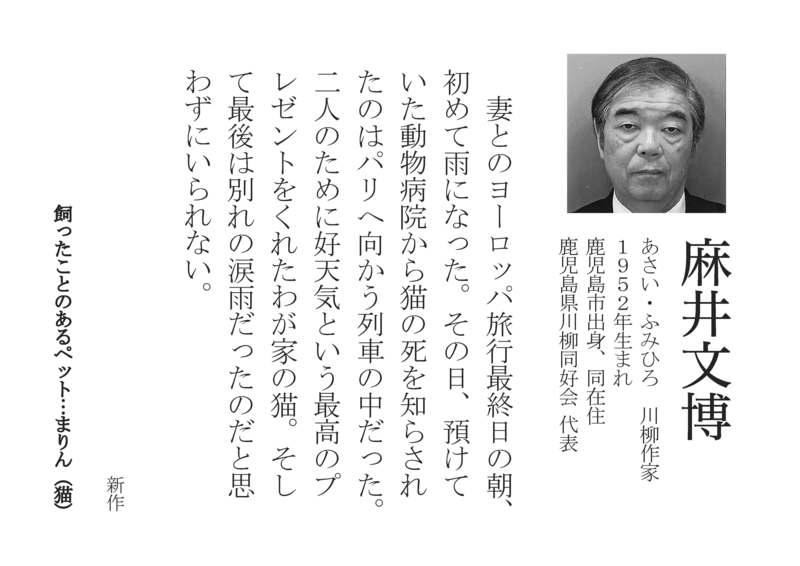 麻井文博
あさい・ふみひろ　川柳作家
1952年生まれ
鹿児島市出身、同在住
鹿児島県川柳同好会 代表
妻とのヨーロッパ旅行最終日の朝、
初めて雨になった。その日、預けて
いた動物病院から猫の死を知らされ
たのはパリへ向かう列車の中だった。
二人のために好天気という最高のプ
レゼントをくれたわが家の猫。そし
て最後は別れの涙雨だったのだと思
わずにいられない。
新作
飼ったことのあるペット…まりん（猫）